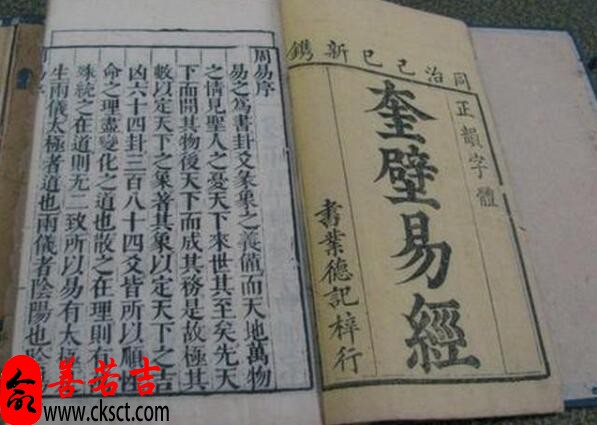 同治己巳新鐫
正韻字體
奎壁易經
書業德記梓行
周易序
易之為書卦爻彖象之義備而天地萬物
之情見聖人之憂天下來世其至矣先天
下而開其物後天下而成其務是故極其
數以定天下之象著其象以定天下之吉
凶六十四卦三百八十四爻皆所以順性
命之理盡變化之道也散之在理則有
殊統之在道則无二致所以易有太極
生兩儀太極者道也兩儀者陰陽也陰
善若吉
www.cksct.com